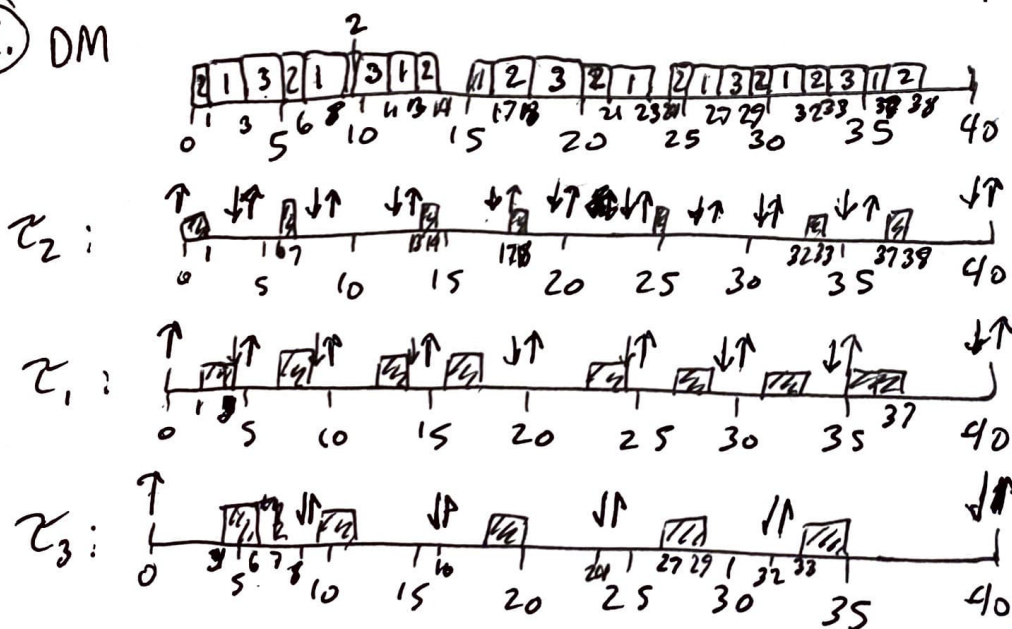 .) DM
2
2 1 3 2 1 3 1 2 1 2 3 2 1 2 1 3 2 1 2 3 1 2
1 3 6 8 11 13 14 17 18 21 23 24 27 29 32 33 38
0 5 10 15 20 25 30 35 40
τ₂ :
0 1 6 7 13 14 17 18 32 33 37 38
5 10 15 20 25 30 35 40
τ₁ :
1 37
0 5 10 15 20 25 30 35 40
τ₃ :
6 7 8 16 24 27 29 32 33
0 5 10 15 20 25 30 35 40